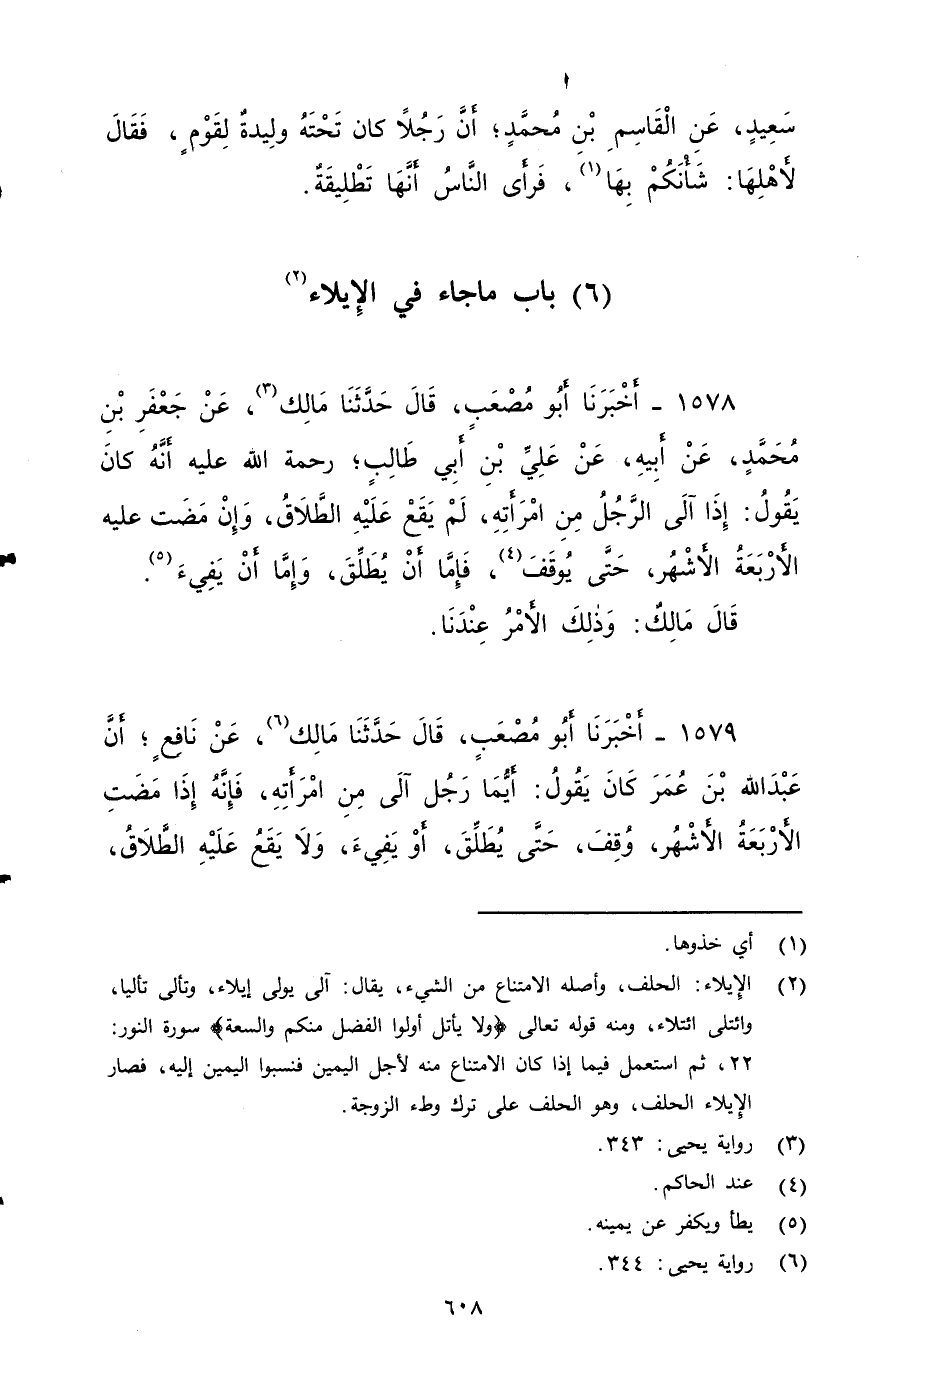 سَعِيدٍ، عَنِ الْقَاسِمِ بْنِ مُحمَّدٍ؛ أَنَّ رَجُلًا كان تَحْتَهُ ولِيدةٌ لِقَوْمٍ، فَقَالَ
لأَهْلِهَا: شَأْنَكُمْ بِهَا(١)، فَرأى النَّاسُ أَنَّهَا تَطْلِيقَةٌ.
(٦) باب ماجاء في الإيلاء(٢)
١٥٧٨ - أَخْبَرَنَا أَبُو مُصْعَبٍ، قَالَ حَدَّثَنَا مَالِك(٣)، عَنْ جَعْفَرِ بْنِ
مُحَمَّدٍ، عَنْ أَبِيهِ، عَنْ عَلِيِّ بْنِ أَبِي طَالِبٍ؛ رحمة الله عليه أَنَّهُ كانَ
يَقُولُ: إِذَا آلَى الرَّجُلُ مِنِ امْرَأَتِهِ، لَمْ يَقَعْ عَلَيْهِ الطَّلَاقُ، وَإِنْ مَضَت عليه
الأَرْبَعَةُ الأَشْهُر، حَتَّى يُوقَفَ(٤)، فَإِمَّا أَنْ يُطَلِّقَ، وَإِمَّا أَنْ يَفِيءَ(٥).
قَالَ مَالِكٌ: وَذٰلِكَ الأَمْرُ عِنْدَنَا.
١٥٧٩ - أَخْبَرَنَا أَبُو مُصْعَبٍ، قَالَ حَدَّثَنَا مَالِك(٦)، عَنْ نَافِعٍ؛ أَنَّ
عَبْدَالله بْنَ عُمَرَ كَانَ يَقُولُ: أَيُّمَا رَجُل آلَى مِنِ امْرَأَتِهِ، فَإِنَّهُ إِذَا مَضَتِ
الأَرْبَعَةُ الأَشْهُر، وُقِفَ، حَتَّى يُطَلِّقَ، أَوْ يَفِيءَ، وَلَا يَقَعُ عَلَيْهِ الطَّلَاقُ،
(١) أي خذوها.
(٢) الإيلاء: الحلف، وأصله الامتناع من الشيء، يقال: آلى يولى إيلاء، وتألى تأليا،
وائتلى ائتلاء، ومنه قوله تعالى ﴿ولا يأتل أولوا الفضل منكم والسعة﴾ سورة النور:
٢٢، ثم استعمل فيما إذا كان الامتناع منه لأجل اليمين فنسبوا اليمين إليه، فصار
الإيلاء الحلف، وهو الحلف على ترك وطء الزوجة.
(٣) رواية يحيى: ٣٤٣.
(٤) عند الحاكم.
(٥) يطأ ويكفر عن يمينه.
(٦) رواية يحيى: ٣٤٤.
٦٠٨